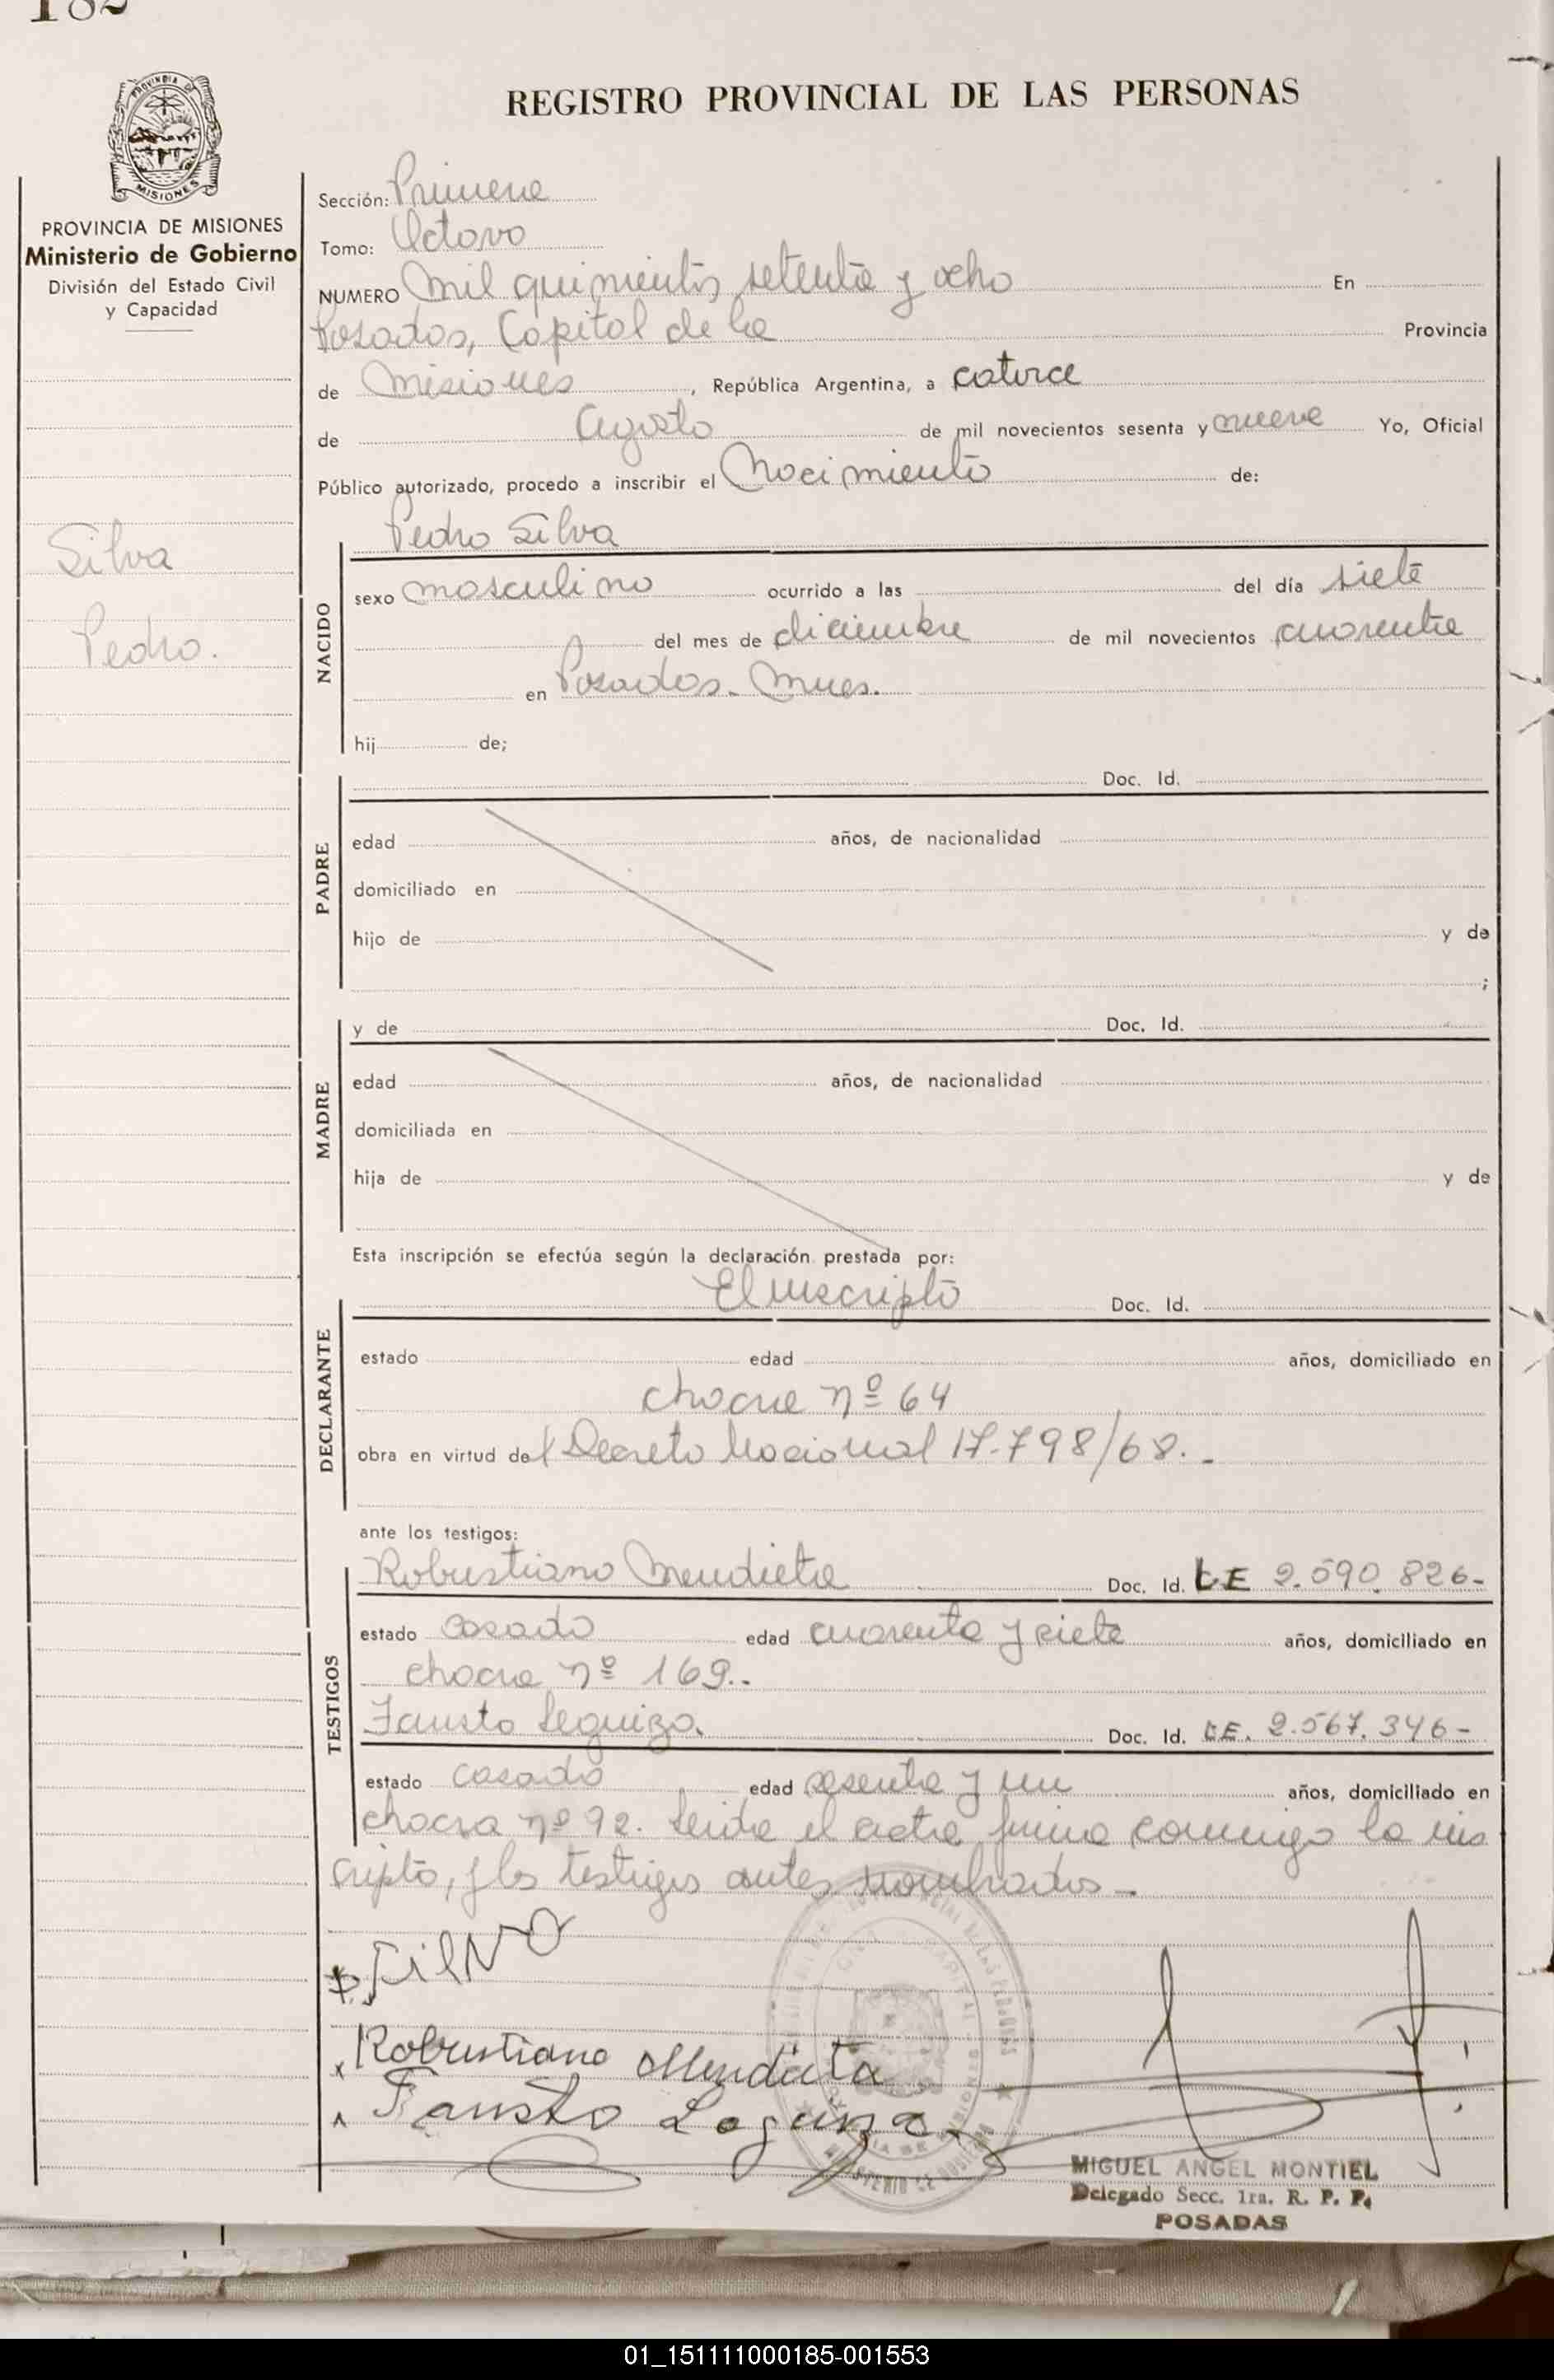 182
PROVINCIA DE
MISIONES
REGISTRO PROVINCIAL DE LAS PERSONAS
PROVINCIA DE MISIONES
Ministerio de Gobierno
División del Estado Civil
y Capacidad
Silva
Pedro.
Sección: Primera
Tomo: Octavo
NUMERO Mil quinientos setenta y ocho En
Posadas, Capital de la Provincia
de Misiones, República Argentina, a catorce
de Agosto de mil novecientos sesenta y nueve Yo, Oficial
Público autorizado, procedo a inscribir el Nacimiento de:
Pedro Silva
NACIDO
sexo masculino ocurrido a las del día siete
del mes de diciembre de mil novecientos cuarenta
en Posadas. Mnes.
hij de;
PADRE
Doc. Id.
edad años, de nacionalidad
domiciliado en
hijo de y de
;
MADRE
y de Doc. Id.
edad años, de nacionalidad
domiciliada en
hija de y de
Esta inscripción se efectúa según la declaración prestada por:
DECLARANTE
El inscripto Doc. Id.
estado edad años, domiciliado en
chacra nº 64
obra en virtud del Decreto Nacional 17.798/68.-
ante los testigos:
TESTIGOS
Robustiano Mendieta Doc. Id. LE 2.590.826-
estado casado edad cuarenta y siete años, domiciliado en
chacra nº 169.-
Fausto Leguiza. Doc. Id. LE. 2.567.346-
estado casado edad sesenta y un años, domiciliado en
chacra nº 92. Leida el acta firma conmigo la ins
cripto, y los testigos antes nombrados-
P. Silva
x Robustiano Mendieta
Fausto Leguiza
MIGUEL ANGEL MONTIEL
Delegado Secc. 1ra. R. P. P.
POSADAS
01_151111000185-001553